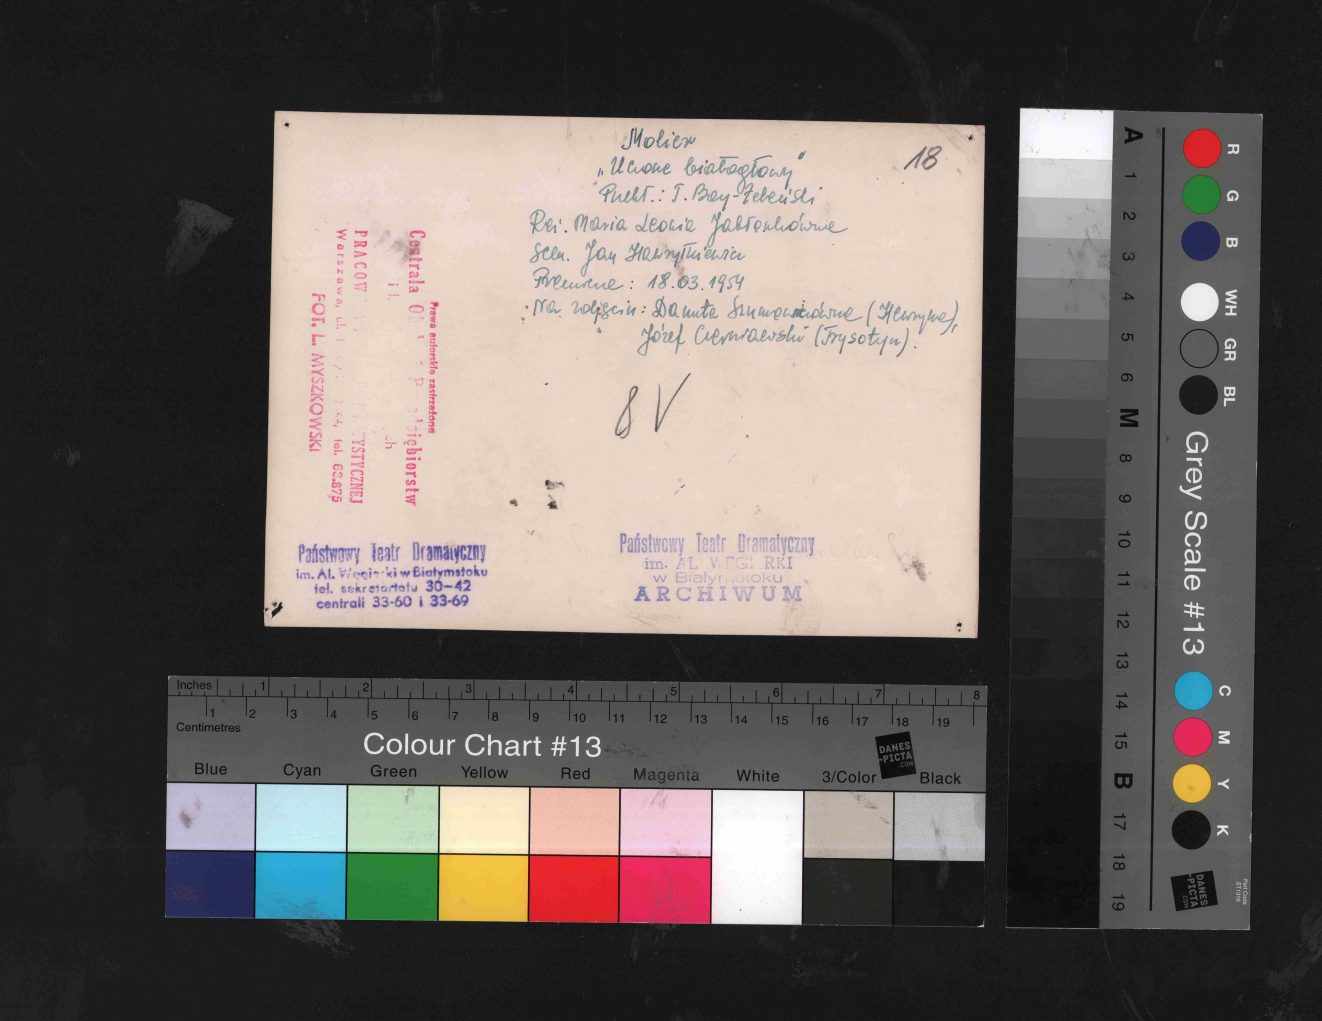 Molier
„Uczone białogłowy”
Przekł.: T. Boy-Żeleński
Reż. Maria Leonia Jabłonkówna
Scen. Jan Hawryłkiewicz
Premiera: 18.03.1954
Na zdjęciu: Danuta (Henryka),
Józef (Trysotyn).
18
8 V
Prawa autorskie zastrzeżone
Centrala
PRACOW YSTYCZNEJ
Warszawa, ul. 44, tel. 68.875
FOT. L. MYSZKOWSKI
Państwowy Teatr Dramatyczny
im. Al. Węgierki w Białymstoku
tel. sekretariatu 30-42
centrali 33-60 i 33-69
Państwowy Teatr Dramatyczny
im. AL WĘGI RKI
w Białymstoku
ARCHIWUM
Inches 1 2 3 4 5 6 7 8
1 2 3 4 5 6 7 8 9 10 11 12 13 14 15 16 17 18 19
Centimetres
Colour Chart #13
DANES
-PICTA
.COM
Blue Cyan Green Yellow Red Magenta White 3/Color Black
R G B WH GR BL
Grey Scale #13
C M Y K
A 1 2 3 4 5 6 M 8 9 10 11 12 13 14 15 B 17 18 19
DANES
-PICTA
.COM